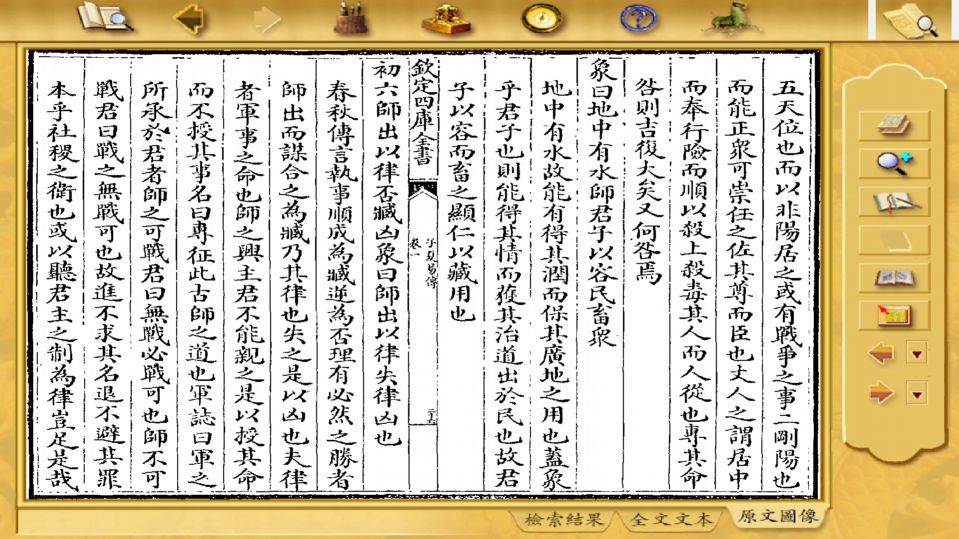 五天位也而以非陽居之或有戰爭之事二剛陽也
而能正衆可崇任之佐其尊而臣也丈人之謂居中
而奉行險而順以殺止殺毒其人而人從也專其命
咎則吉復大矣又何咎焉
象曰地中有水師君子以容民畜衆
地中有水故能有得其潤而保其廣地之用也蓋象
乎君子也則能得其情而蓰其治道出於民也故君
子以容而畜之顯仁以藏用也
欽定四庫全書
子夏易傳
卷一
二十六
初六師出以律否臧凶象曰師出以律失律凶也
春秋傳言執事順成為臧逆為否理有必然之勝者
師出而謀合之為臧乃其律也失之是以凶也夫律
者軍事之命也師之興主君不能親之是以授其命
而不授其事名曰專征此古師之道也軍誌曰軍之
所承於君者師之可戰君曰無戰必戰可也師不可
戰君曰戰之無戰可也故進不求其名退不避其罪
本乎社稷之衛也或以聽君主之制為律豈足是哉
檢索結果
全文文本
原文圖像